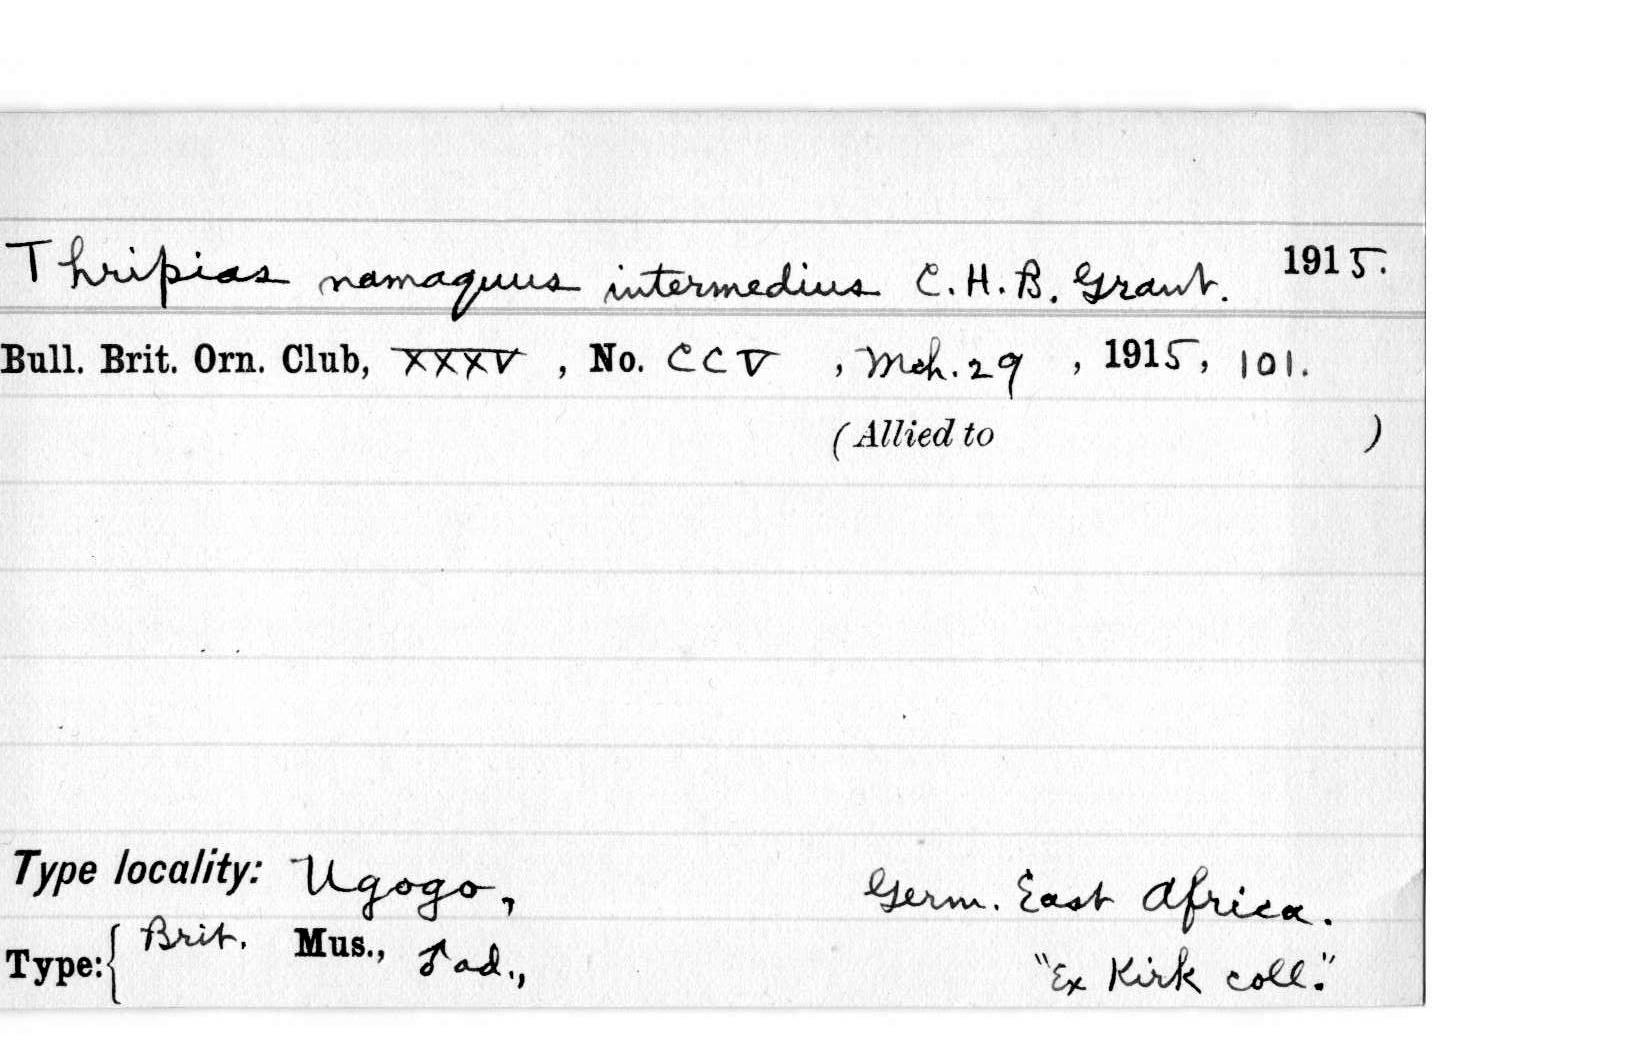 Thripias namaquus intermedius C.H.B. Grant. 1915.
Bull. Brit. Orn. Club, XXXV, No. CCV, Mch. 29, 1915, 101.
(Allied to )
Type locality: Ugogo, Germ. East Africa.
Type: { Brit. Mus., ♂ ad., "Ex Kirk coll."